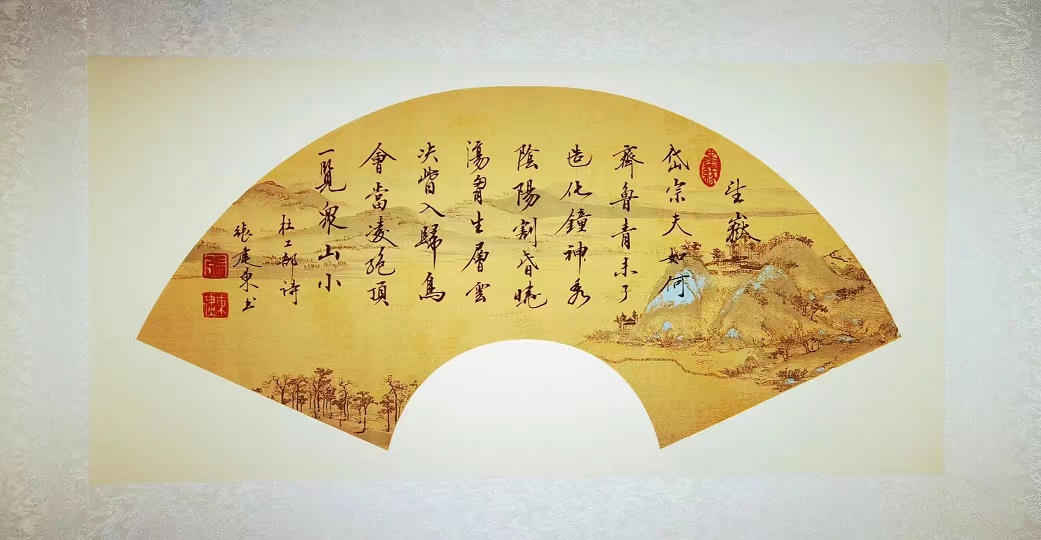 望嶽
岱宗夫如何
齊魯青未了
造化鐘神秀
陰陽割昏曉
蕩胷生層雲
决眥入歸鳥
會當凌絕頂
一覽衆山小
杜工部詩
張建東书